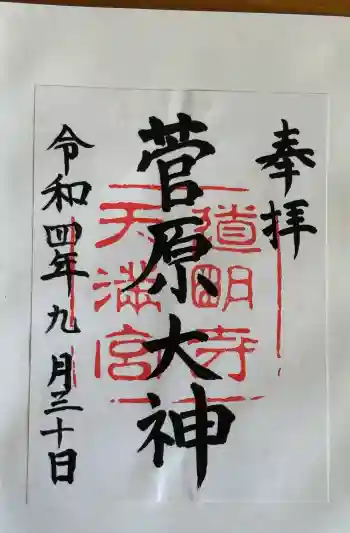 奉拝
菅原大神
道明寺
天満宮
令和四年九月三十日